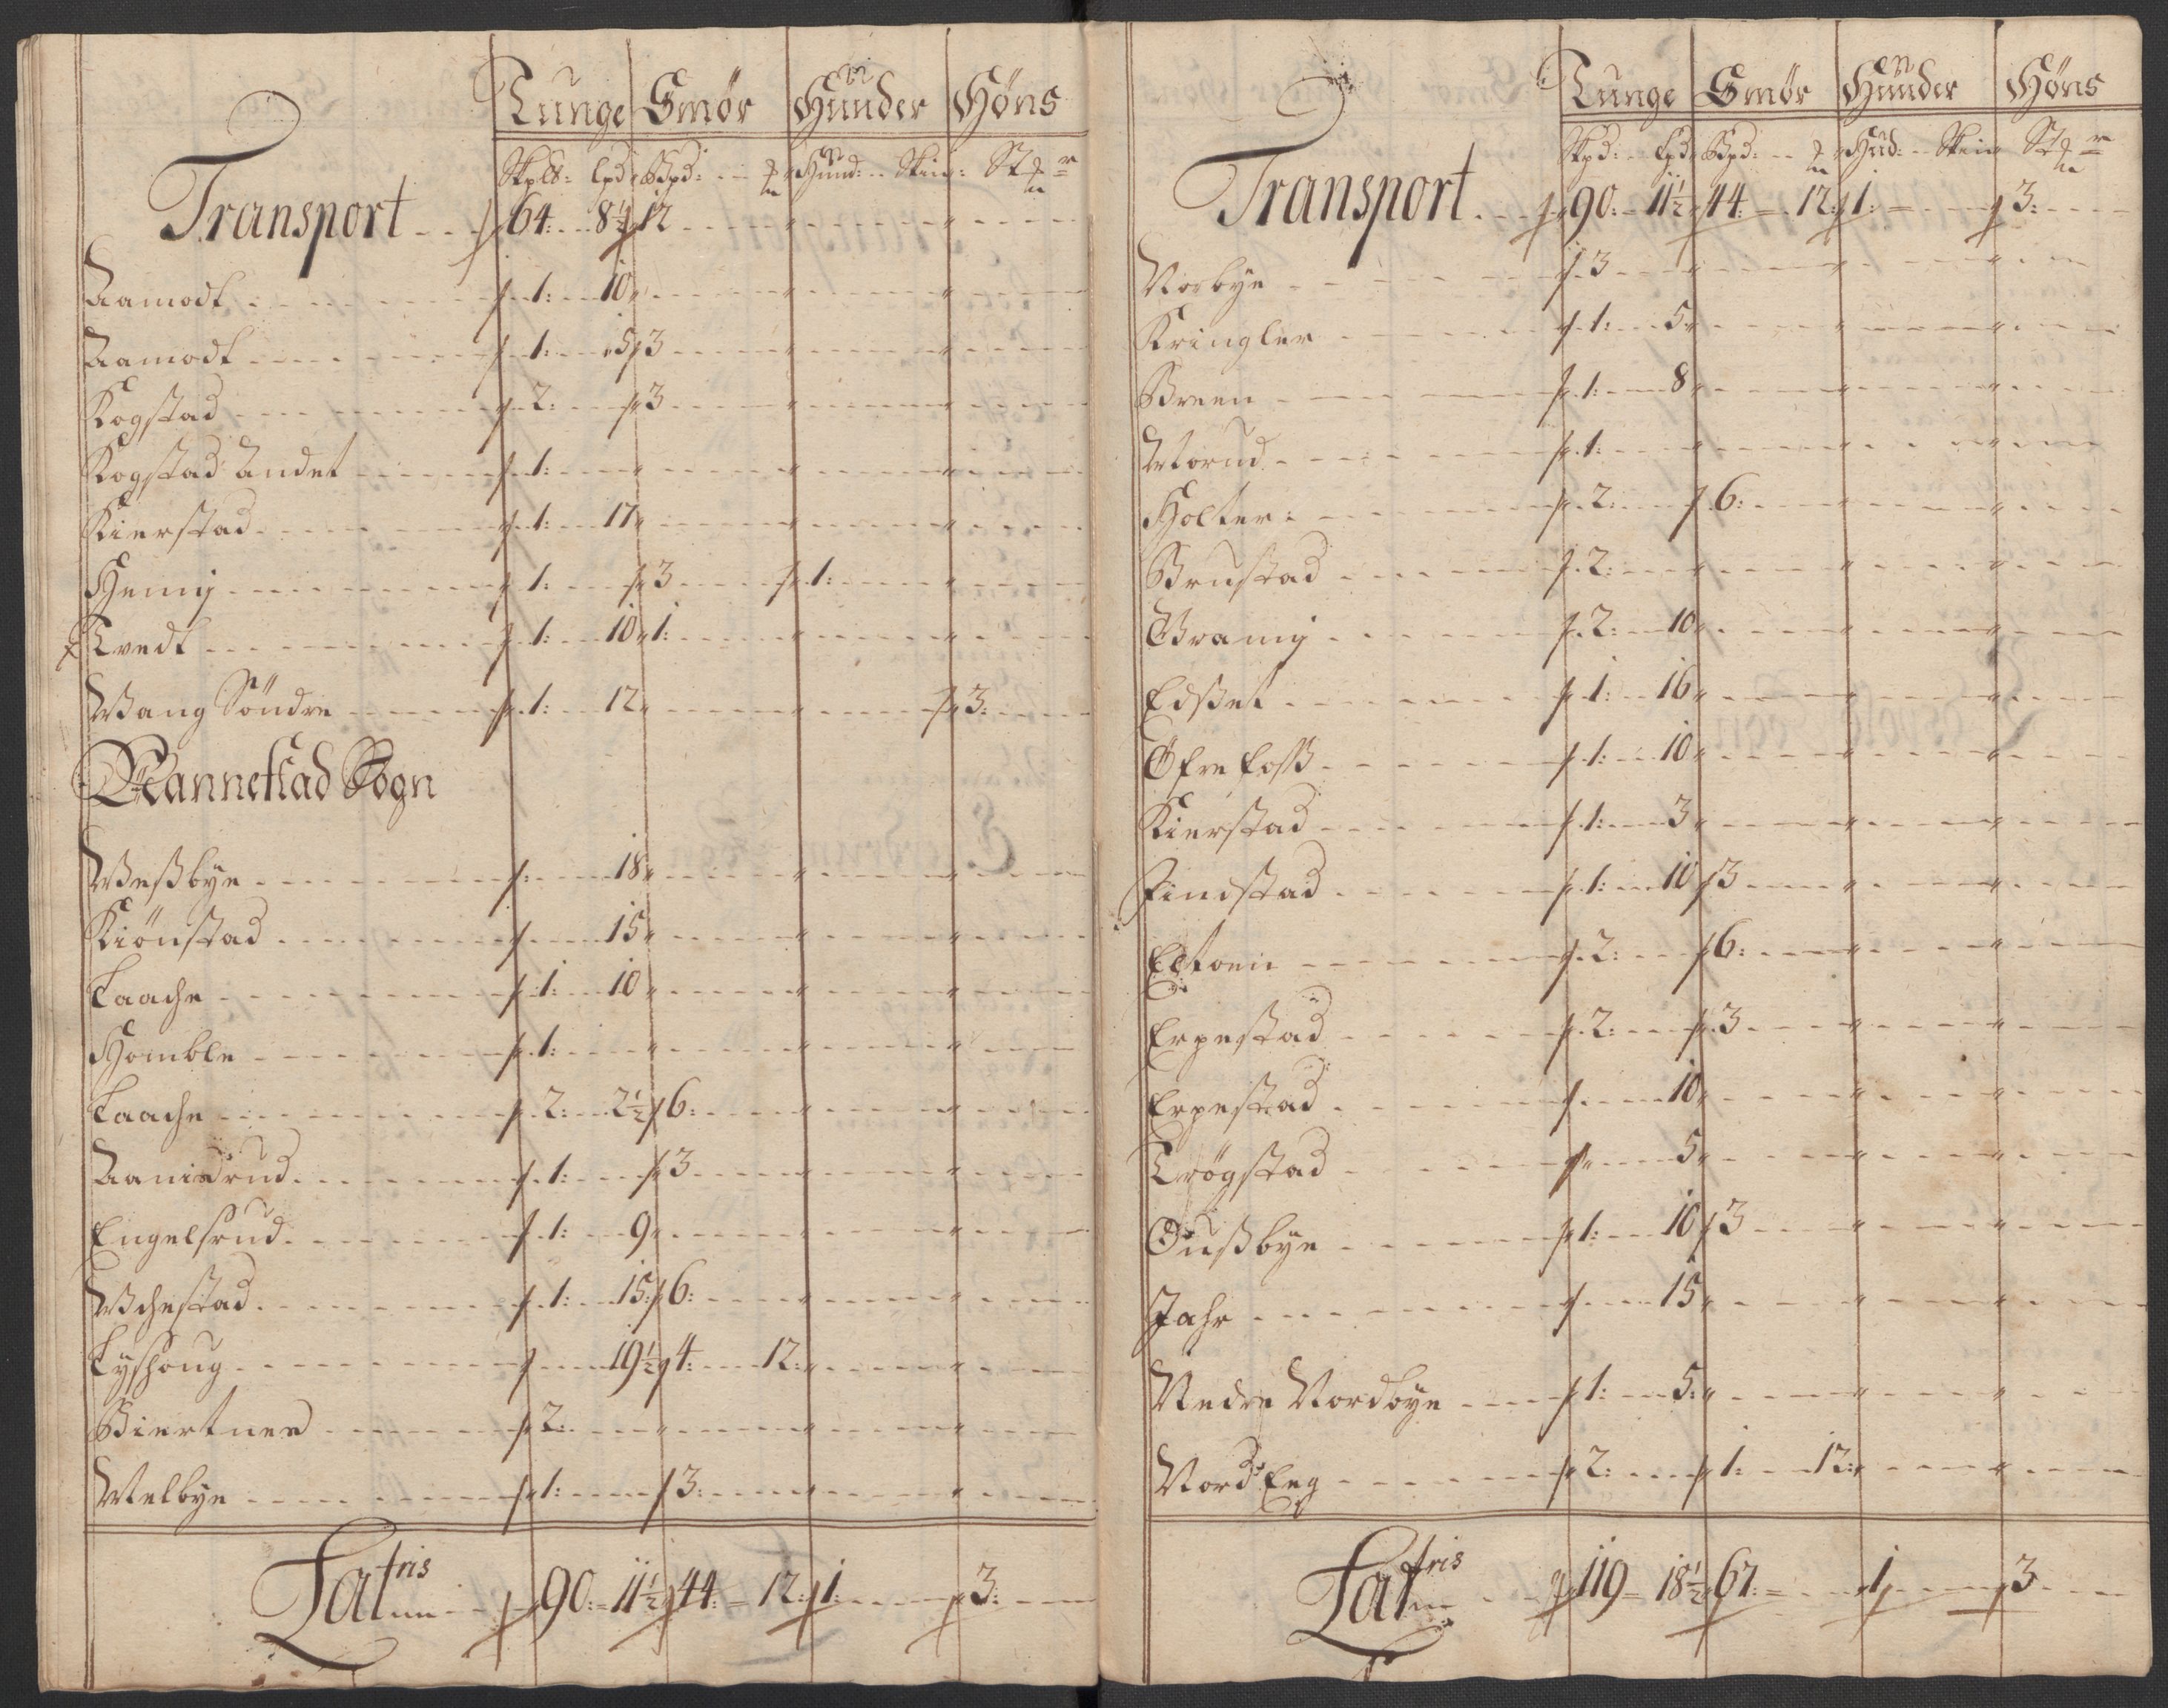 Tunge Smør Hunder Höns
Skpd: Lpd Bpd: Hund: Skin: St
Transport 64: 8½ 12
Aamodt 1: 10
Aamodt 1: 5 3
Kogstad 2: 3
Kogstad Andet 1:
Kierstad 1: 17
Hemig 1: 3 1:
Tvedt 1: 10 1:
Wang Söndre 1: 12 3:
Nannestad Sogn
Weßbye 18
Kiönstad 15
Laache 1: 10
Homble 1:
Laache 2: 2½ 6:
Aamodrud 1: 3
Engelsrud 1: 9
Wchestad 1: 15: 6:
Lyshoug 19½ 4: 12:
Biertnes 2:
Melbye 1: 3:
Lat ris 90: 11½ 44: 12: 1: 3:
Tunge Smør Hunder Höns
Skpd: Lpd Bpd: Hud: Skin St
Transport 90: 11½ 44: 12: 1: 3:
Norbye 3
Kringler 1: 5
Breen 1: 8
Morud 1:
Holter: 2: 6:
Brustad 2:
Gramig 2: 10
Edßet 1: 16
Öfre Foss 1: 10
Kierstad 1: 3
Findstad 1: 10 3
Eltoen 2: 6:
Erpestad 2: 3
Erpestad 10
Trögstad 5
Oußbye 1: 10 3
Jahr 15
Nedre Nordbye 1: 5:
Nordr Eng 2: 1: 12:
Lat ris 119 18½ 67: 1 3